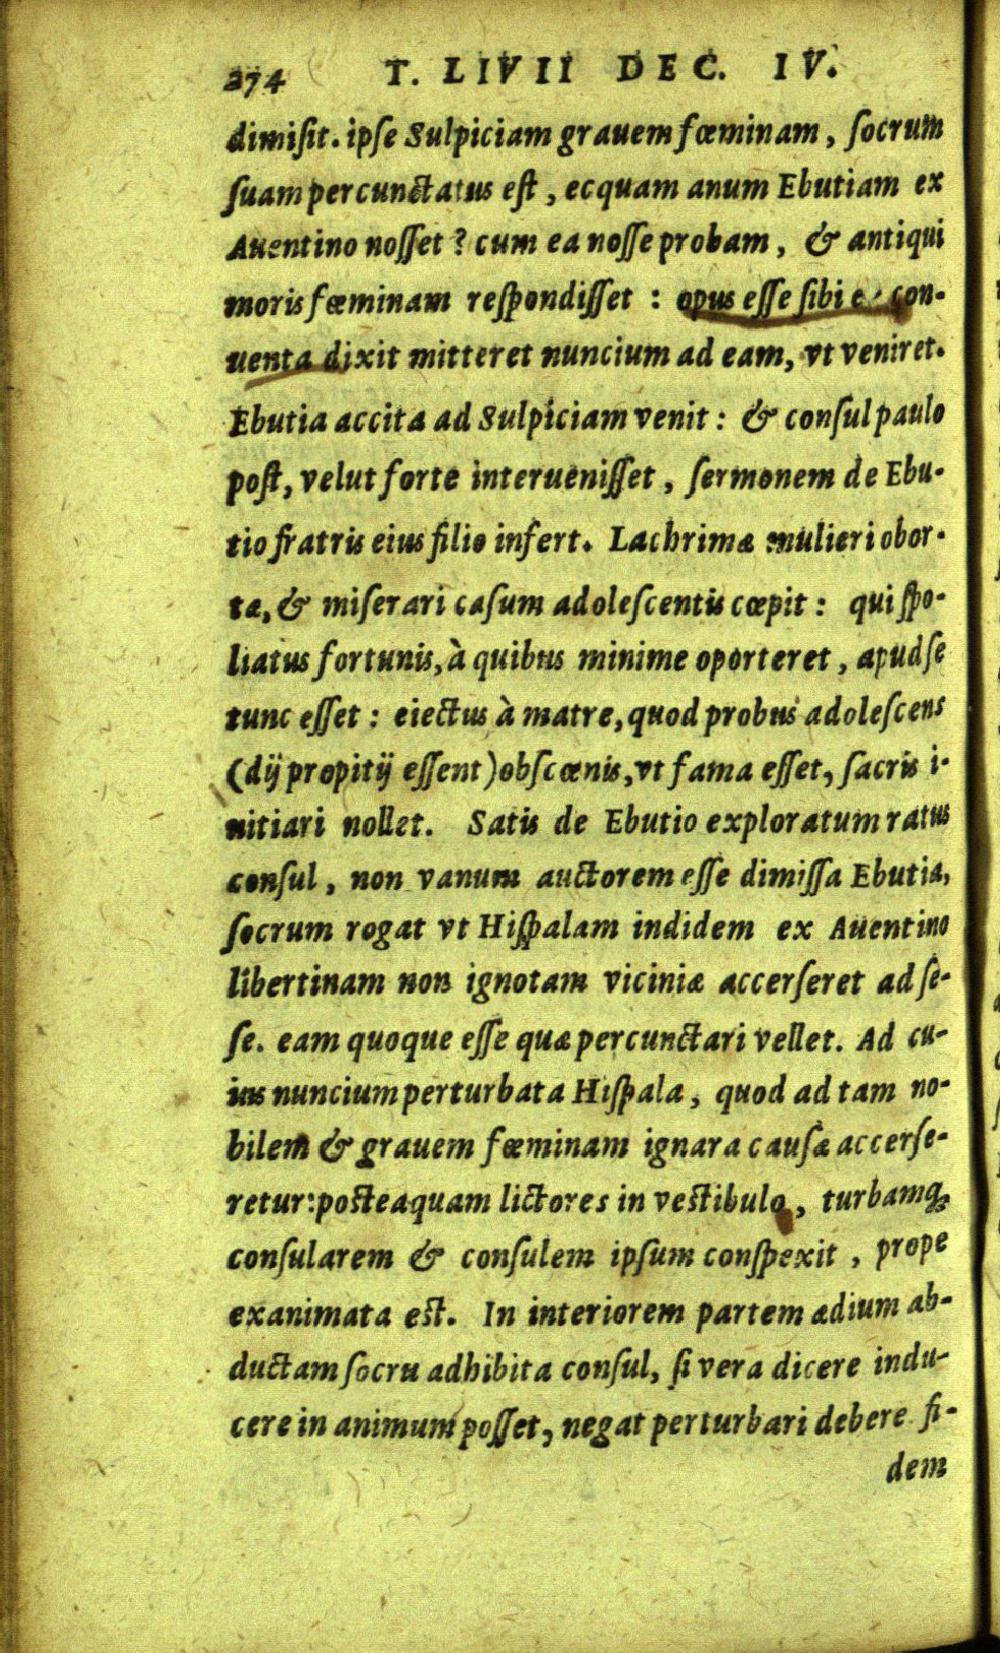 274 T. LIVII DEC. IV.
dimiſit. ipſe Sulpiciam grauem fœminam, ſocrum
ſuam percunctatus eſt, ecquam anum Ebutiam ex
Auentino noſſet? cum ea noſſe probam, & antiqui
moris fœminam reſpondiſſet: opus eſſe ſibi e con-
uenta dixit mitteret nuncium ad eam, vt veniret.
Ebutia accita ad Sulpiciam venit: & conſul paulo
poſt, velut forte interueniſſet, ſermonem de Ebu-
tio fratris eius filio infert. Lachrimæ mulieri obor-
tæ, & miſerari caſum adoleſcentis cœpit: qui ſpo-
liatus fortunis, à quibus minime oporteret, apud ſe
tunc eſſet: eiectus à matre, quod probus adoleſcens
(dij propitij eſſent) obſcœnis, vt fama eſſet, ſacris i-
nitiari nollet. Satis de Ebutio exploratum ratus
conſul, non vanum auctorem eſſe dimiſſa Ebutia,
ſocrum rogat vt Hiſpalam indidem ex Auentino
libertinam non ignotam viciniæ accerſeret ad ſe-
ſe. eam quoque eſſe quæ percunctari vellet. Ad cu-
ius nuncium perturbata Hiſpala, quod ad tam no-
bilem & grauem fœminam ignara cauſæ accerſe-
retur: poſteaquam lictores in veſtibulo, turbamq;
conſularem & conſulem ipſum conſpexit, prope
exanimata eſt. In interiorem partem ædium ab-
ductam ſocru adhibita conſul, ſi vera dicere indu-
cere in animum poſſet, negat perturbari debere fi-
dem